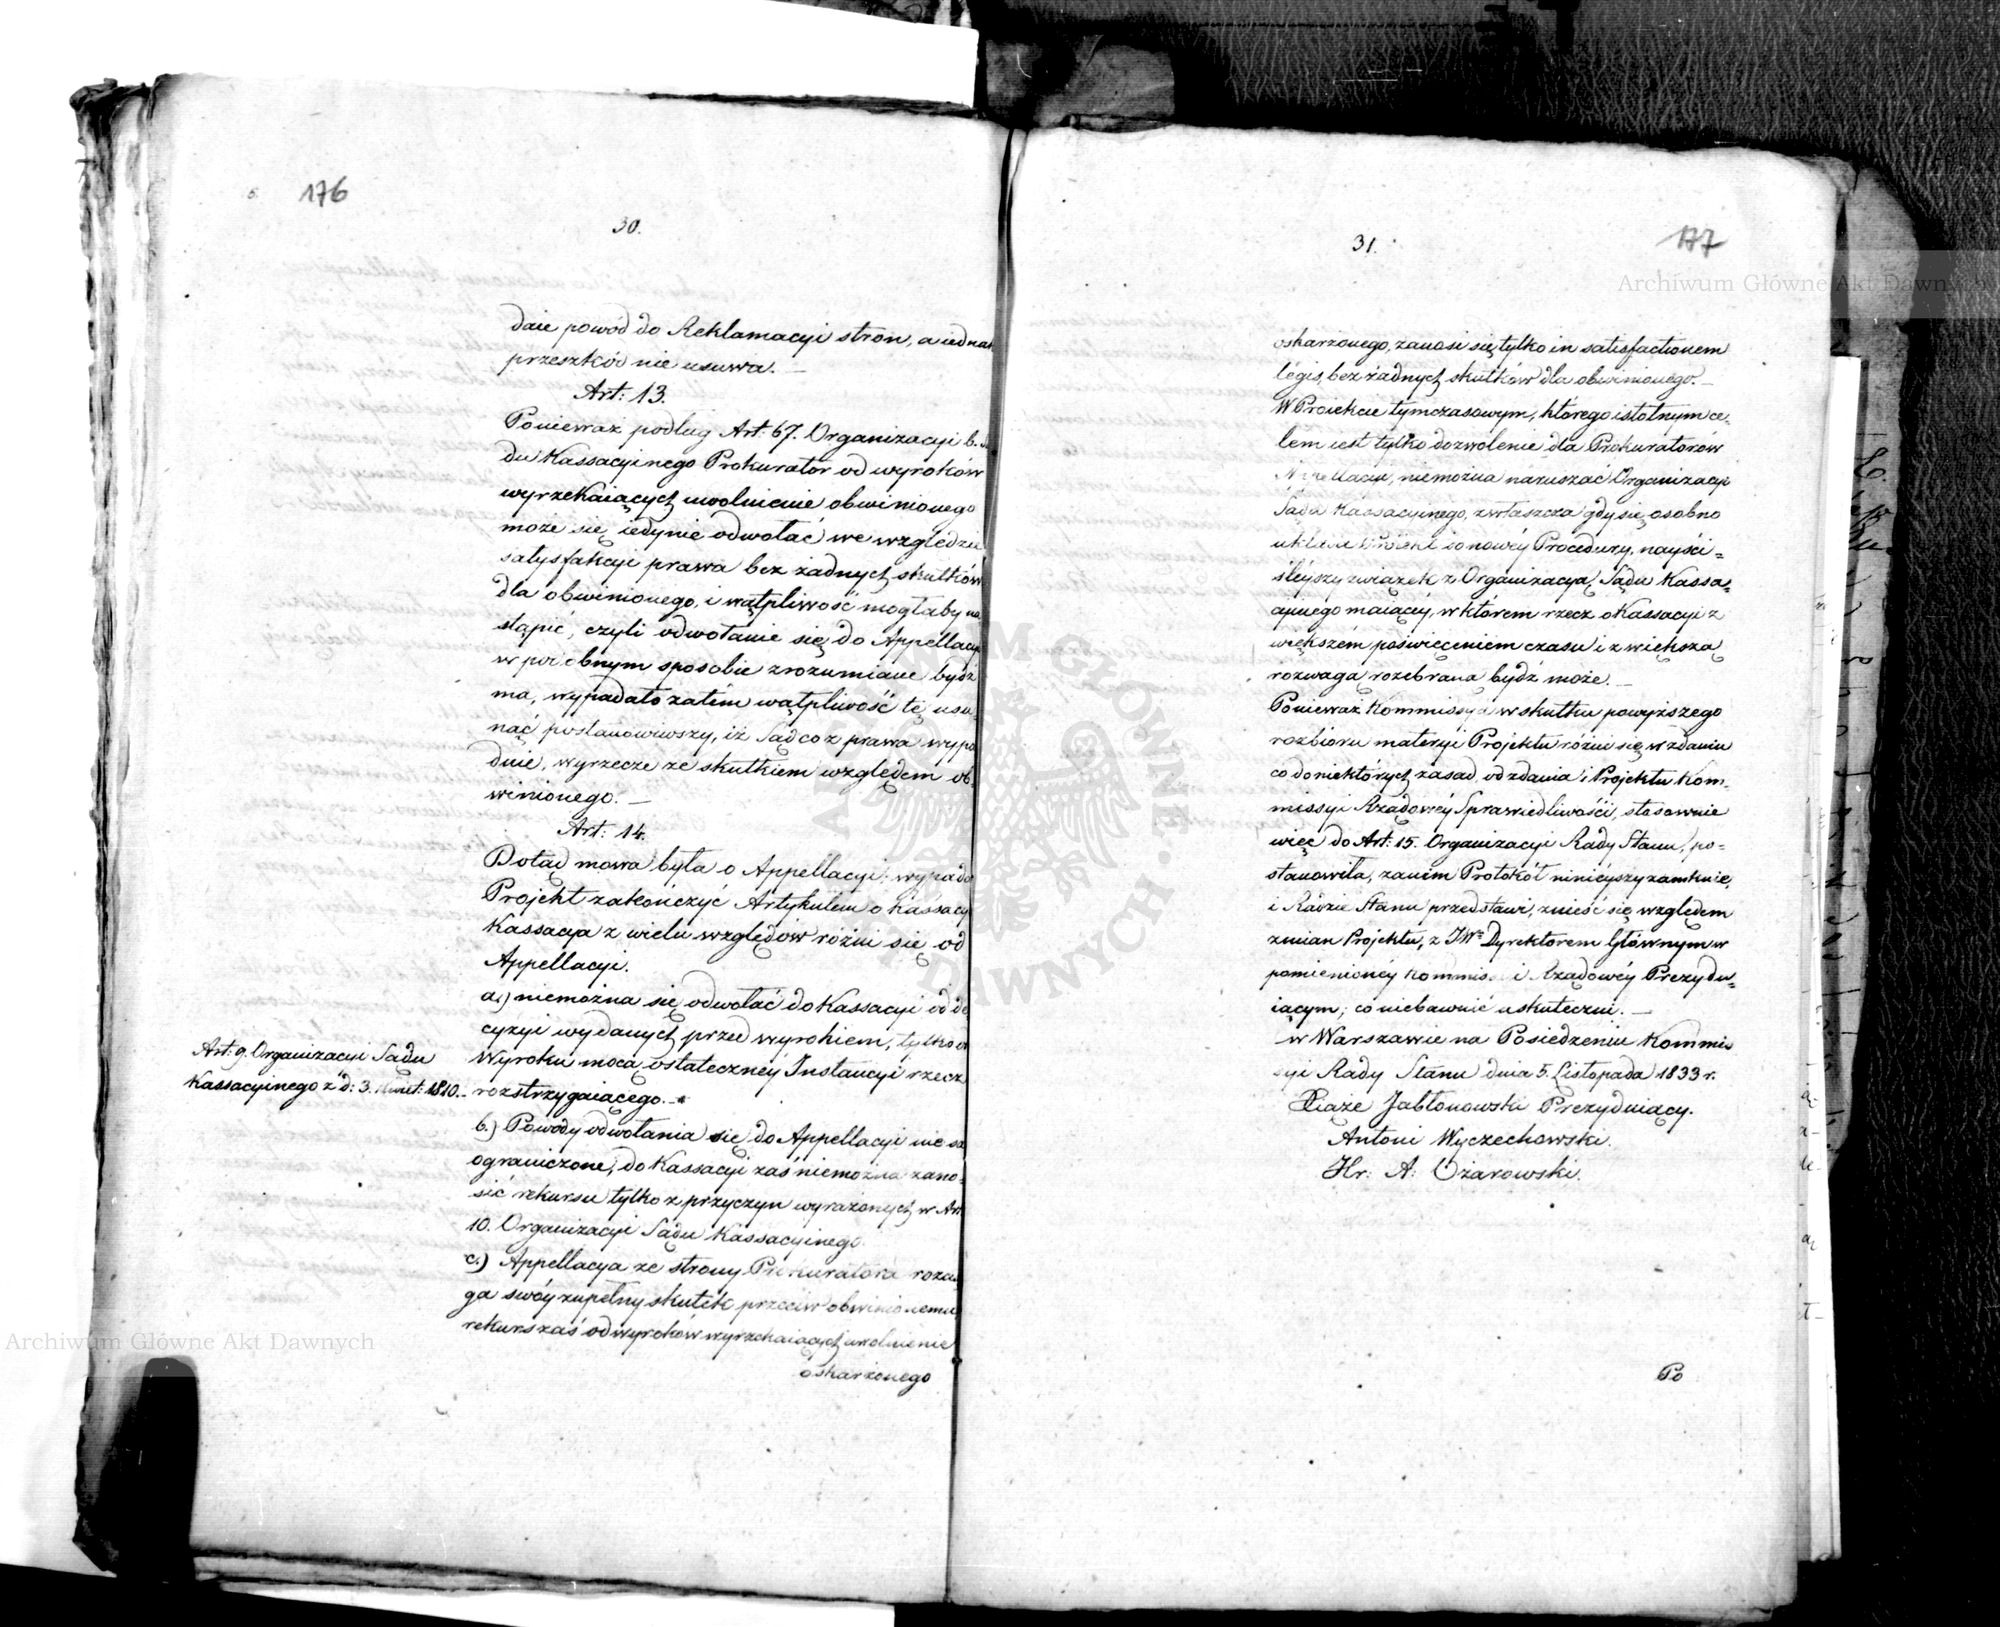 176
30.
daie powód do Reklamacyi stron, a iednak
przeszkód nie usuwa. —
Art: 13.
Ponieważ podług Art: 67. Organizacyi b.
du Kassacyinego Prokurator od wyroków
wyrzekaiących uwolnienie obwinionego
może się iedynie odwołać we względzie
satysfakcyi prawa bez żadnych skutków
dla obwinionego, i wątpliwość mogłaby na
stąpić, czyli odwołanie się do Appellacyi
w podobnym sposobie zrozumiane bydź
ma, wypadało zatém wątpliwość tę usu-
nąć postanowiwszy, iż Sąd co z prawa wypa
dnie, wyrzecze ze skutkiem względem ob-
winionego. —
Art: 14.
Dotąd mowa była o Appellacyi; wypada
Projekt zakończyć Artykułem o Kassacyi
Kassacya z wielu względów różni się od
Appellacyi.
a.) niemożna się odwołać do Kassacyi od de
cyzyi wydanych przed wyrokiem, tylko od
Wyroku mocą ostateczney Instancyi rzecz
rozstrzygaiącego. —
Art: 9. Organizacyi Sądu
Kassacyinego z d: 3. Kwiet: 1810. —
b.) Powody odwołania się do Appellacyi nie są
ograniczone, do Kassacyi zaś niemożna zano-
sić rekursu tylko z przyczyn wyrażonych w Art:
10. Organizacyi Sądu Kassacyinego.
c.) Appellacya ze strony Prokuratora rozcią
ga swóy zupełny skutek przeciw obwinionemu,
rekurs zaś od wyroków wyrzekaiących uwolnienie
oskarżonego
177
31.
oskarżonego, zanosi się tylko in satisfactionem
légis, bez żadnych skutków dla obwinionego. —
W Proiekcie tymczasowym, którego istotnym ce-
lem iest tylko dozwolenie dla Prokuratorów
Appellacyi, niemożna naruszać Organizacyi
Sądu Kassacyinego, zwłaszcza gdy się osobno
układa Projekt do nowéy Procedury, nayści=
śleyszy związek z Organizacyą Sądu Kassa-
cyinego maiącéy, w którem rzecz o Kassacyi z
większém poświęceniem czasu i z większą
rozwagą rozebraną bydź może. —
Ponieważ Kommissya w skutku powyższego
rozbioru materyi Projektu różni się w zdaniu
co do niektórych zasad, od zdania i Projektu Kom-
missyi Rządowéy Sprawiedliwości, stosownie
więc do Art: 15. Organizacyi Rady Stanu, po=
stanowiła, zanim Protokół niniéyszy zamknie,
i Radzie Stanu przedstawi, znieść się względem
zmian Projektu, z JWm Dyrektorem Głównym w
pomienionéy Kommissyi Rządowéy Prezydu=
iącym; co niebawnie uskuteczni. —
w Warszawie na Posiedzeniu Kommis
syi Rady Stanu dnia 5. Listopada 1833 r.
Xiąże Jabłonowski Prezyduiący.
Antoni Wyczechowski.
Hr: A: Ożarowski.
Po
Archiwum Główne Akt Dawnych
Archiwum Główne Akt Dawnych
ARCHIWUM GŁÓWNE AKT DAWNYCH